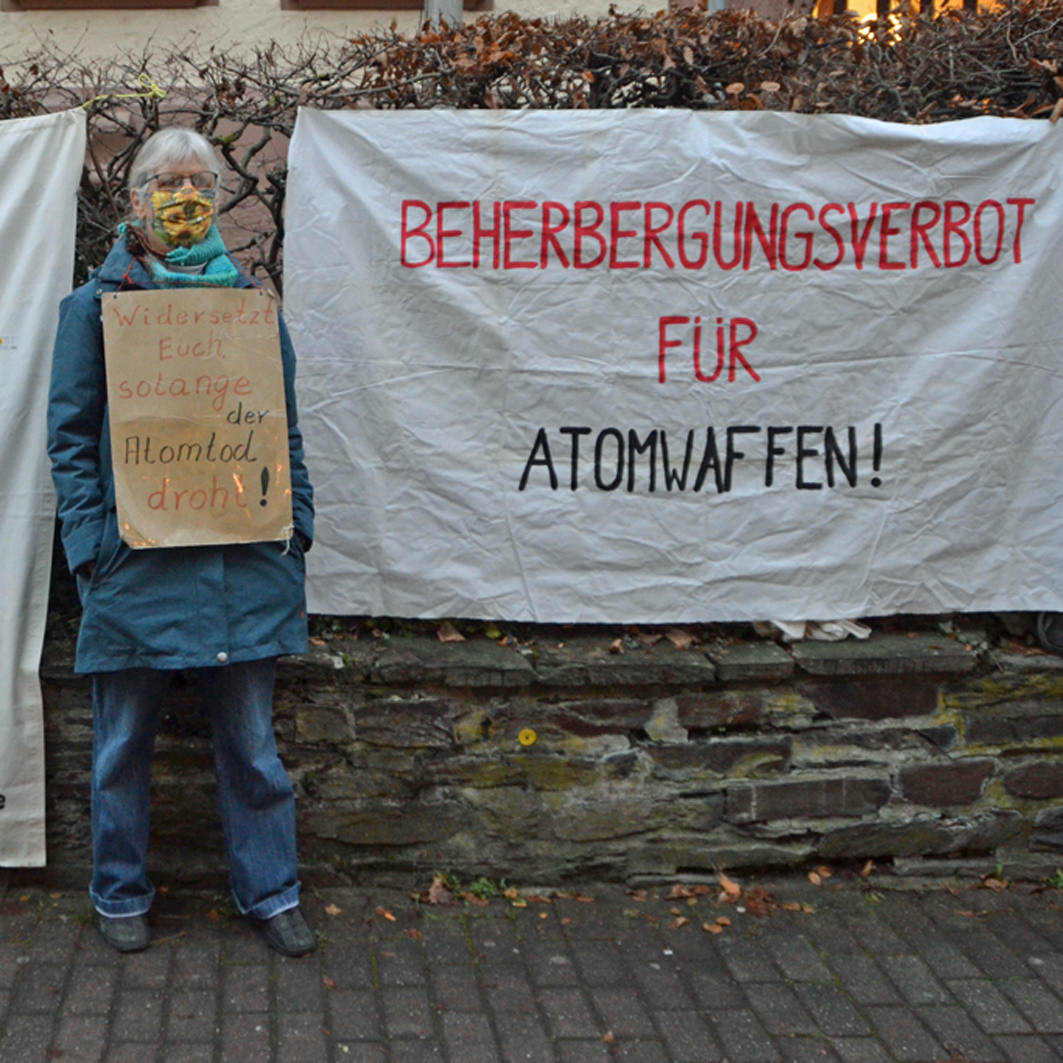 Widersetzt
Euch,
solange
der
Atomtod
droht!
BEHERBERGUNGSVERBOT
FÜR
ATOMWAFFEN!